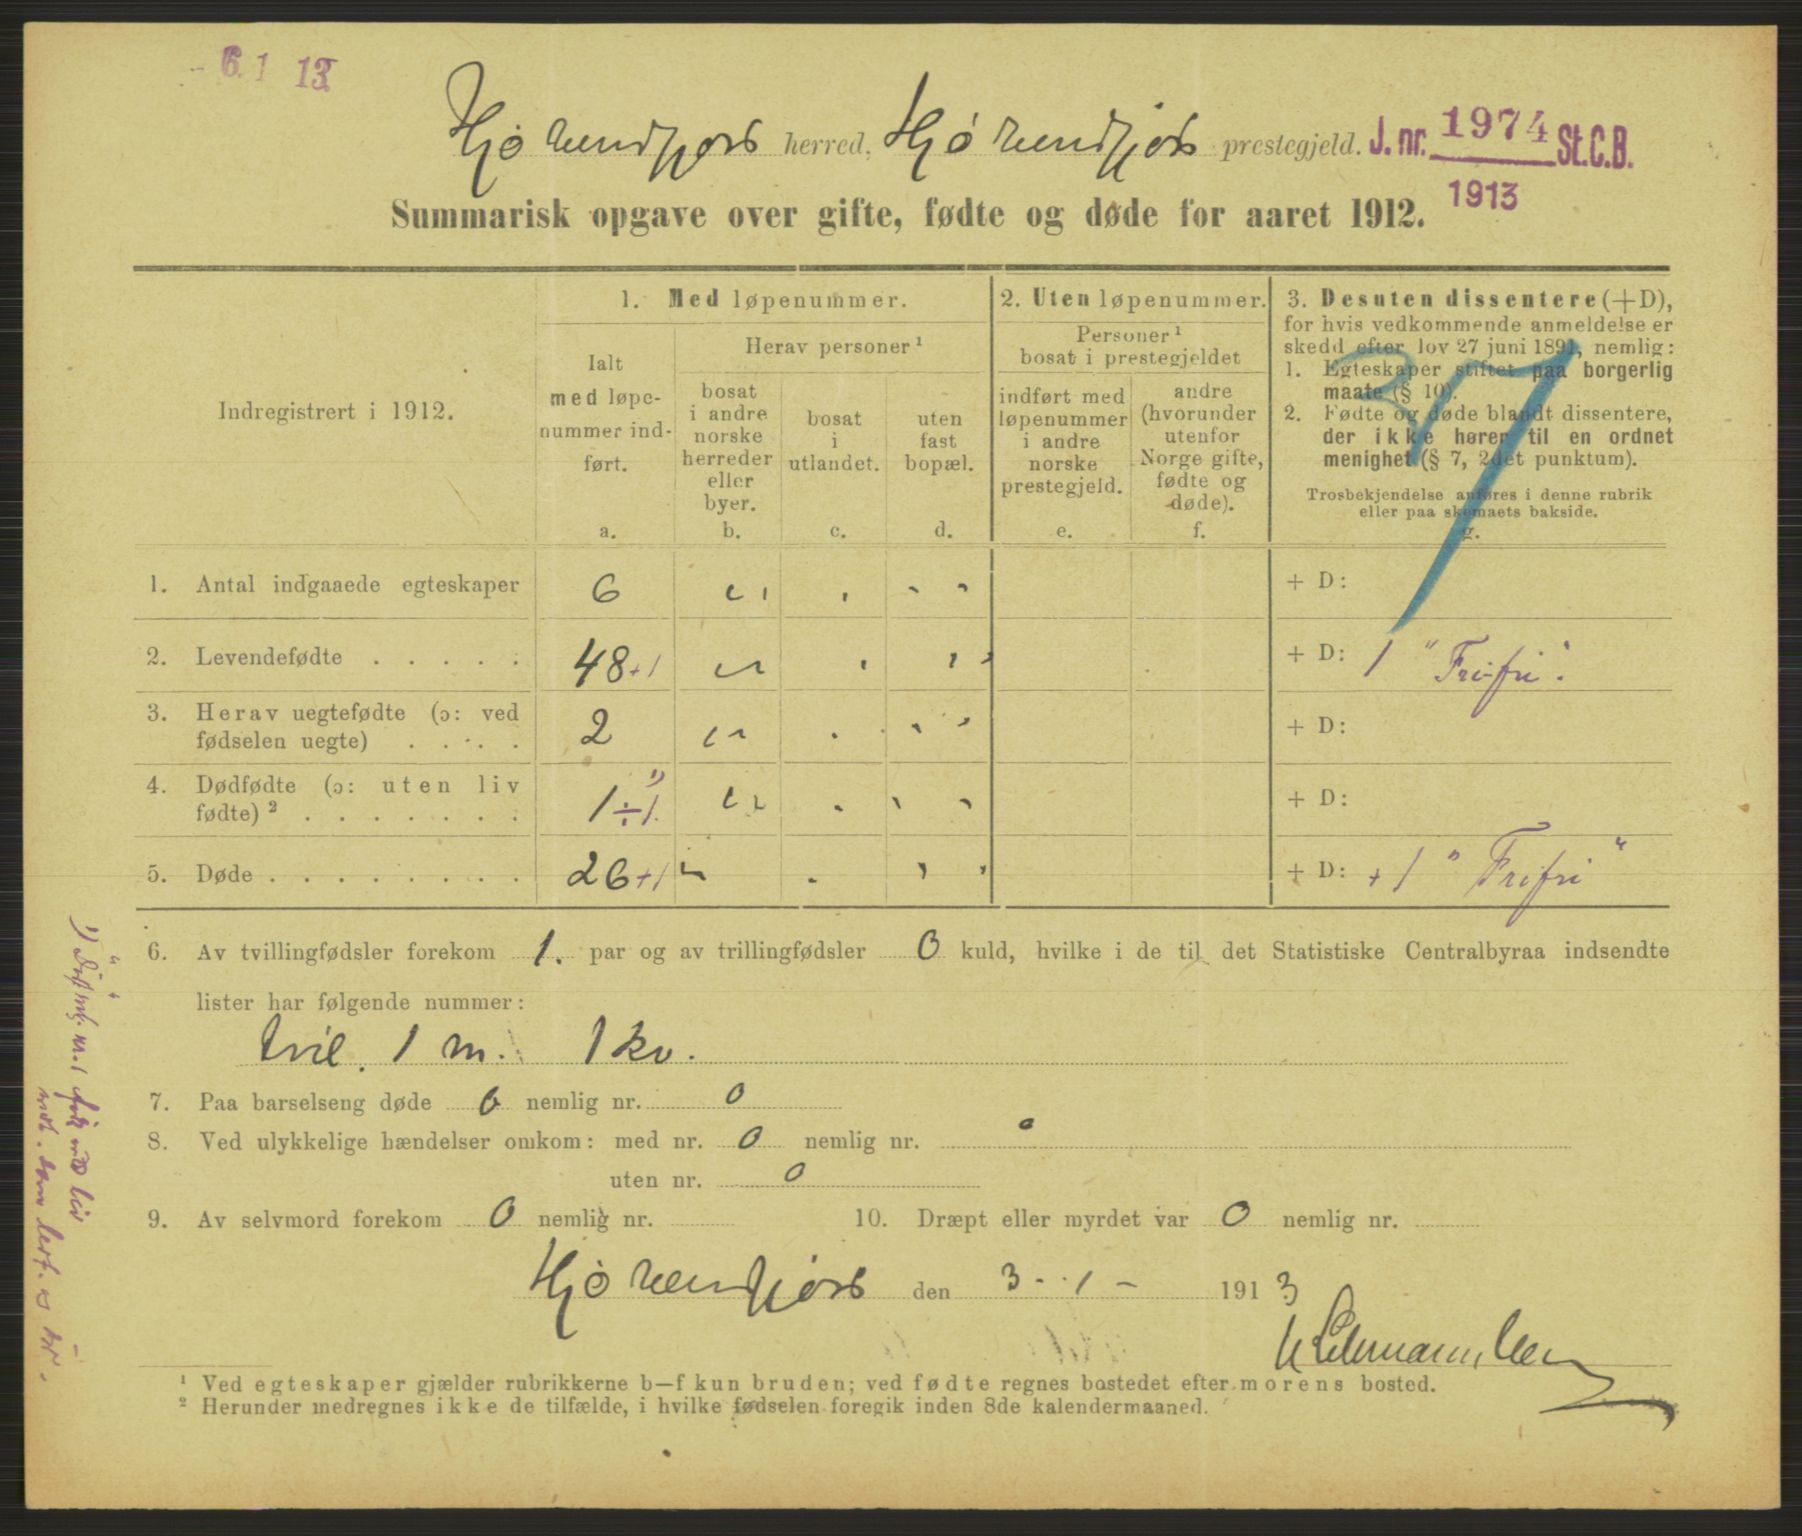 6. 1 13.
Hjørundfjord herred, Hjørundfjord prestegjeld. J. nr. 1974 St. C. B.
1913
Summarisk opgave over gifte, fødte og døde for aaret 1912.
Indregistrert i 1912.
1. Med løpenummer.
Ialt med løpenummer indført.
a.
Herav personer ¹
bosat i andre norske herreder eller byer.
b.
bosat i utlandet.
c.
uten fast bopæl.
d.
2. Uten løpenummer.
Personer ¹ bosat i prestegjeldet
indført med løpenummer i andre norske prestegjeld.
e.
andre (hvorunder utenfor Norge gifte, fødte og døde).
f.
3. Desuten dissentere (+D),
for hvis vedkommende anmeldelse er
skedd efter lov 27 juni 1891, nemlig:
1. Egteskaper stiftet paa borgerlig
maate (§ 10).
2. Fødte og døde blandt dissentere,
der ikke hører til en ordnet
menighet (§ 7, 2det punktum).
Trosbekjendelse anføres i denne rubrik
eller paa skemaets bakside.
g.
1. Antal indgaaede egteskaper 6 + D:
2. Levendefødte . . . . . 48 +1 + D: 1 "Frifri".
3. Herav uegtefødte (ɔ: ved
fødselen uegte) . . . . 2 + D:
4. Dødfødte (ɔ: uten liv
fødte) ² . . . . . . . 1 ÷1 ¹) + D:
5. Døde . . . . . . . . 26 +1 + D: +1 "Frifri"
6. Av tvillingfødsler forekom 1. par og av trillingfødsler 0 kuld, hvilke i de til det Statistiske Centralbyraa indsendte
lister har følgende nummer:
tvil. 1 m. 1 kv.
7. Paa barselseng døde 0 nemlig nr. 0
8. Ved ulykkelige hændelser omkom: med nr. 0 nemlig nr. 0
uten nr. 0
9. Av selvmord forekom 0 nemlig nr. 10. Dræpt eller myrdet var 0 nemlig nr.
Hjørundfjord den 3 - 1 - 1913
¹ Ved egteskaper gjælder rubrikkerne b—f kun bruden; ved fødte regnes bostedet efter morens bosted.
² Herunder medregnes ikke de tilfælde, i hvilke fødselen foregik inden 8de kalendermaaned.